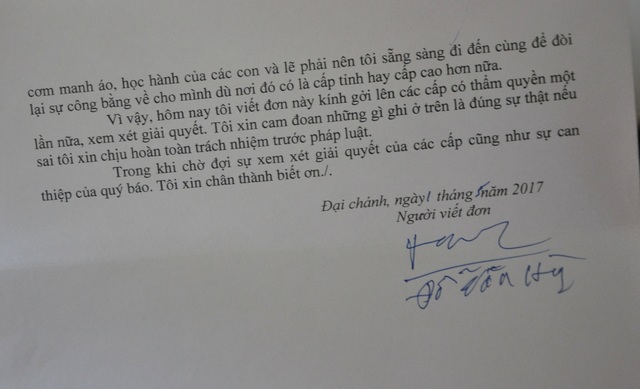 cơm manh áo, học hành của các con và lẽ phải nên tôi sẵng sàng đi đến cùng để đòi
lại sự công bằng về cho mình dù nơi đó có là cấp tỉnh hay cấp cao hơn nữa.
Vì vậy, hôm nay tôi viết đơn này kính gởi lên các cấp có thẩm quyền một
lần nữa, xem xét giải quyết. Tôi xin cam đoan những gì ghi ở trên là đúng sự thật nếu
sai tôi xin chịu hoàn toàn trách nhiệm trước pháp luật.
Trong khi chờ đợi sự xem xét giải quyết của các cấp cũng như sự can
thiệp của quý báo. Tôi xin chân thành biết ơn./.
Đại chánh, ngày1 tháng 5 năm 2017
Người viết đơn
Đỗ Văn